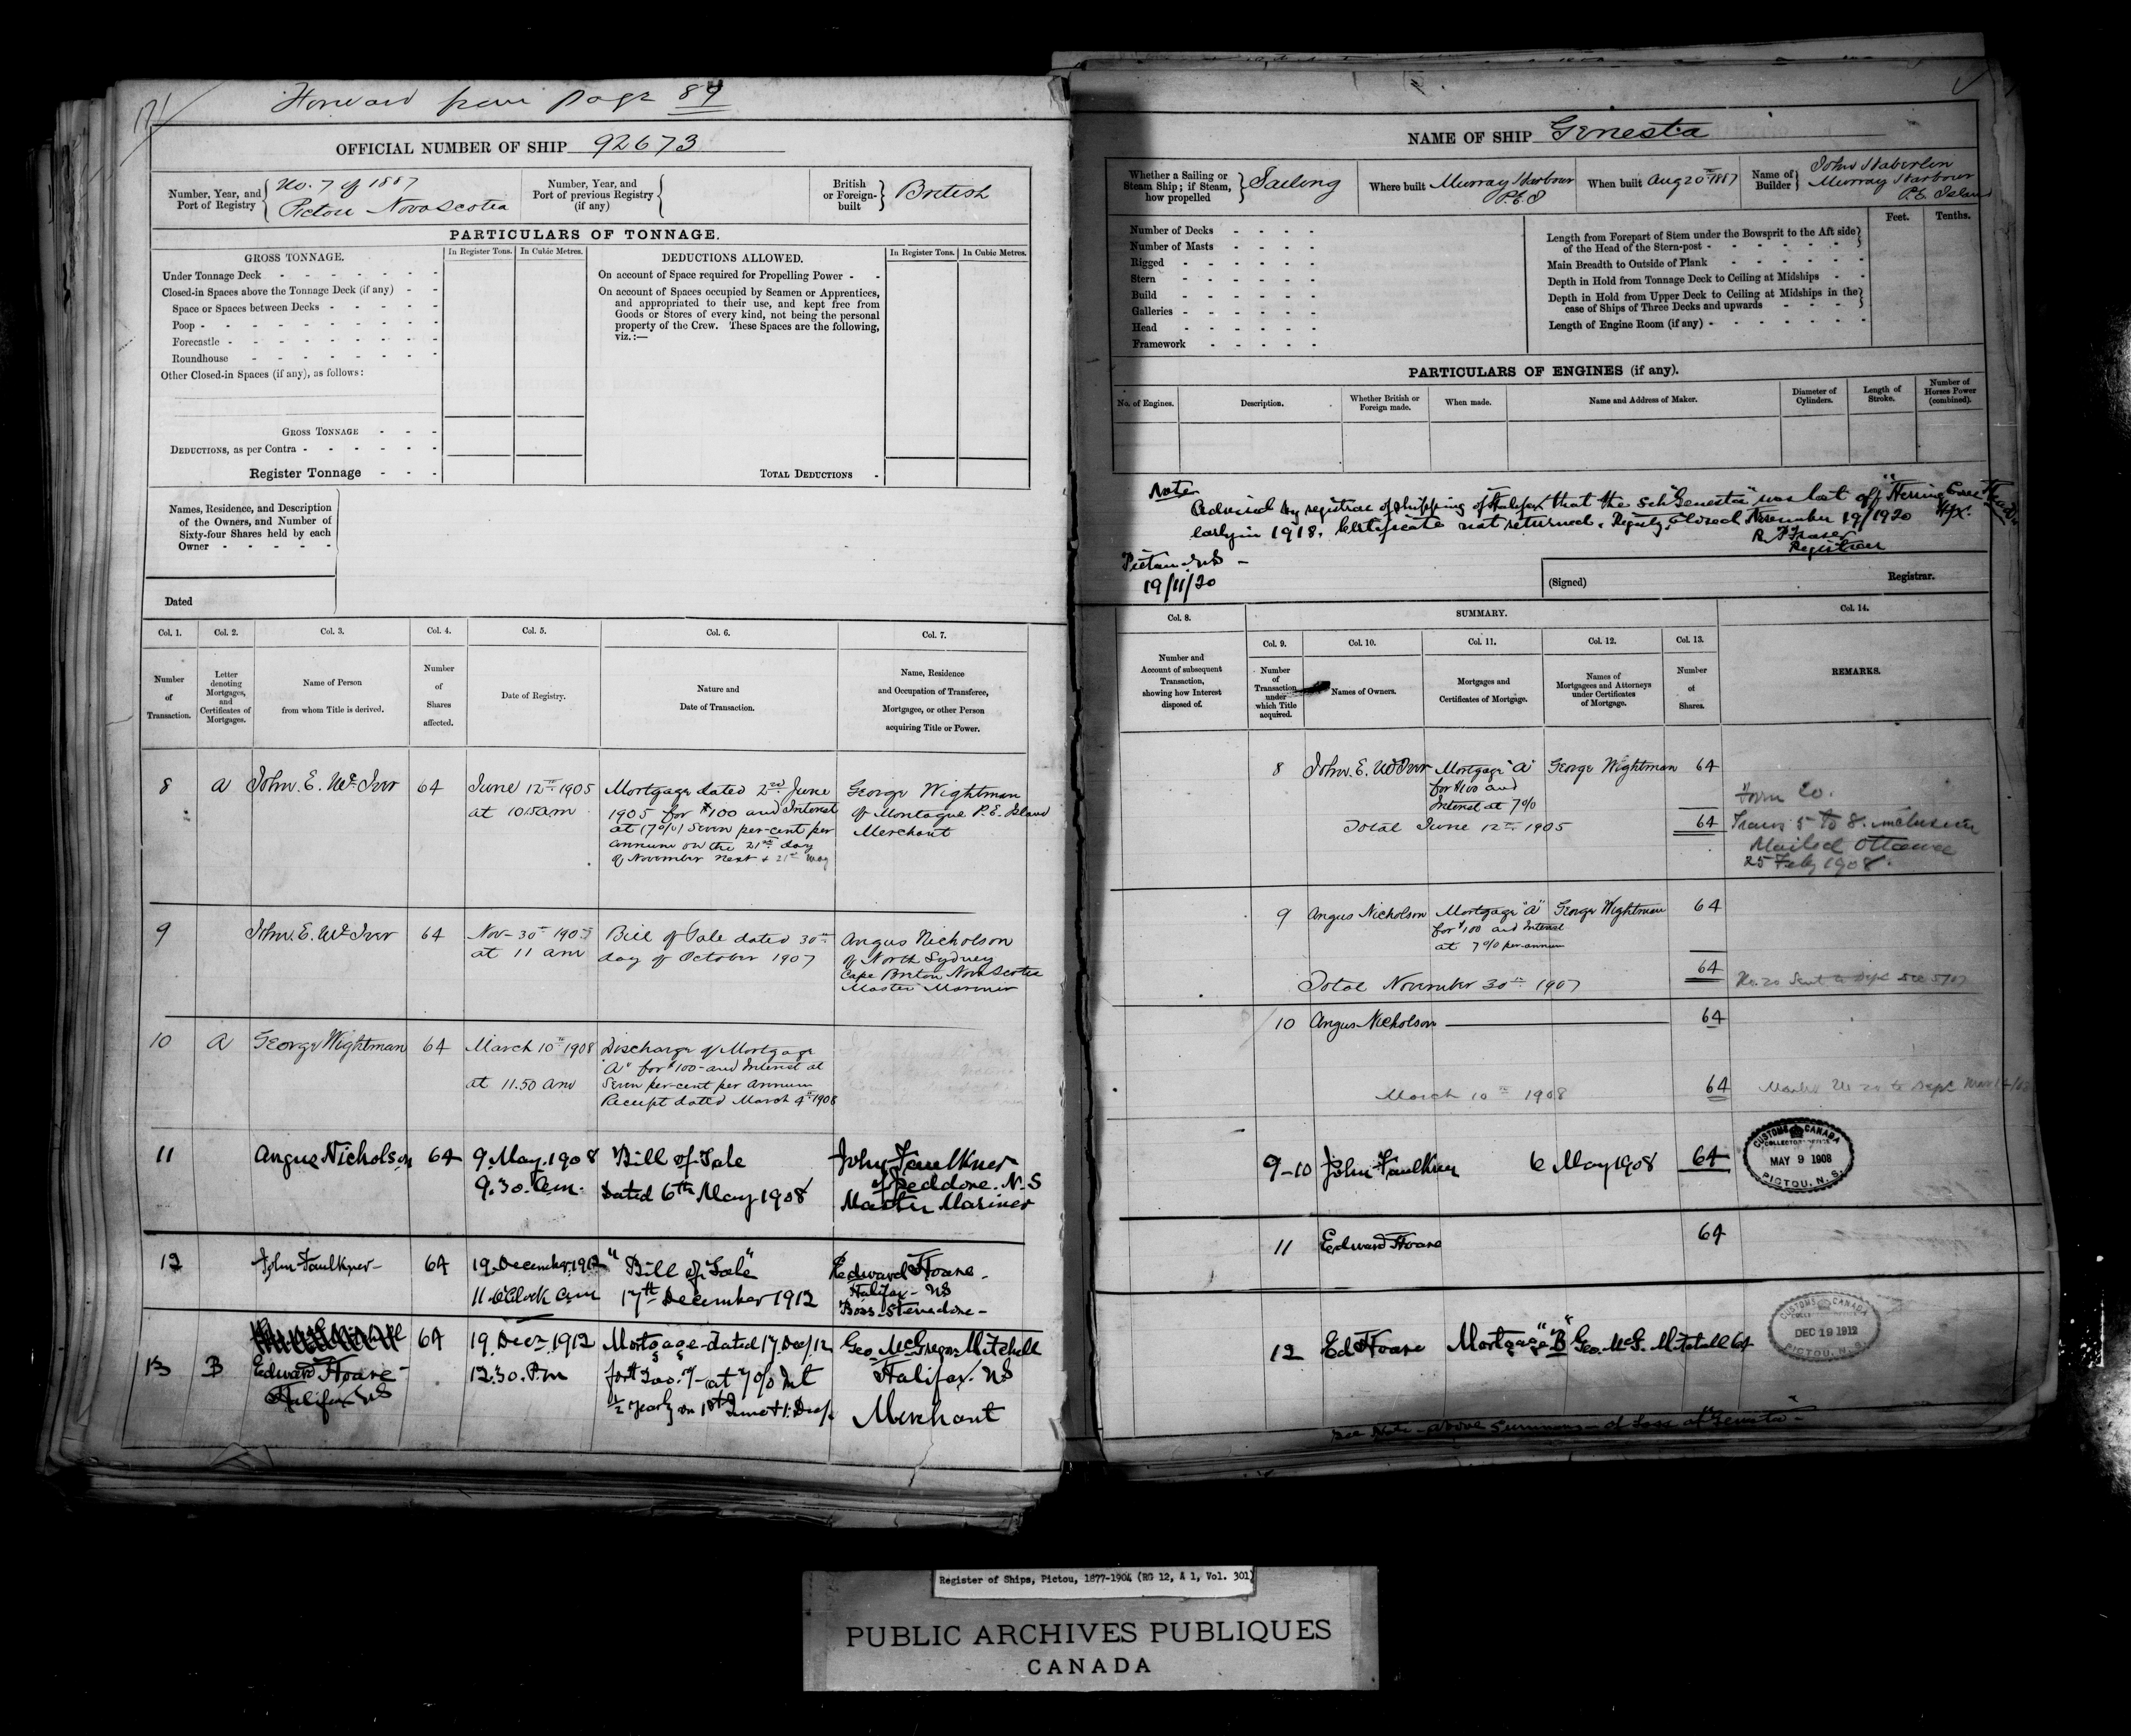 171
Forward from page 89
OFFICIAL NUMBER OF SHIP 92673
Number, Year, and Port of Registry
No. 7 of 1887
Pictou Nova Scotia
Number, Year, and Port of previous Registry (if any)
British or Foreign-built
British
PARTICULARS OF TONNAGE.
GROSS TONNAGE.
In Register Tons.
In Cubic Metres.
Under Tonnage Deck
Closed-in Spaces above the Tonnage Deck (if any)
Space or Spaces between Decks
Poop
Forecastle
Roundhouse
Other Closed-in Spaces (if any), as follows:
GROSS TONNAGE
DEDUCTIONS, as per Contra
Register Tonnage
DEDUCTIONS ALLOWED.
In Register Tons.
In Cubic Metres.
On account of Space required for Propelling Power
On account of Spaces occupied by Seamen or Apprentices,
and appropriated to their use, and kept free from
Goods or Stores of every kind, not being the personal
property of the Crew. These Spaces are the following,
viz.:—
TOTAL DEDUCTIONS
Names, Residence, and Description
of the Owners, and Number of
Sixty-four Shares held by each
Owner
Dated
Col. 1.
Number of Transaction.
Col. 2.
Letter denoting Mortgages, and Certificates of Mortgages.
Col. 3.
Name of Person from whom Title is derived.
Col. 4.
Number of Shares affected.
Col. 5.
Date of Registry.
Col. 6.
Nature and Date of Transaction.
Col. 7.
Name, Residence and Occupation of Transferee, Mortgagee, or other Person acquiring Title or Power.
8
A
John. E. McIvor
64
June 12th 1905
at 10.5 am
Mortgage dated 2nd June
1905 for $100 and Interest
at (7%) Seven per-cent per
annum on the 21st day
of November next & 21st May
George Wightman
of Montague P.E. Island
Merchant
9
John. E. McIvor
64
Nov- 30th 1907
at 11 am
Bill of Sale dated 30th
day of October 1907
Angus Nicholson
of North Sydney
Cape Breton Nova Scotia
Master Mariner
10
A
George Wightman
64
March 10th 1908
at 11.50 am
Discharge of Mortgage
"A" for $100- and Interest at
Seven per-cent per annum
Receipt dated March 4th 1908
11
Angus Nicholson
64
9 May. 1908
9.30. a.m.
Bill of Sale
Dated 6th May 1908
John Faulkner
of Jeddore. N.S
Master Mariner
12
John Faulkner
64
19 December 1912
11 o'Clock am
"Bill of Sale"
17th December 1912
Edward Hoare.
Halifax - NS
Boss Stevedore -
13
B
Edward Hoare -
Halifax NS
64
19 Decr. 1912
12.30. P.m
Mortgage dated 17 Dec/12
at 7% Int
½ yearly on 1st June & 1. Dec/.
Geo McGregor Mitchell
Halifax. NS
Merchant
NAME OF SHIP Genesta
Whether a Sailing or Steam Ship; if Steam, how propelled
Sailing
Where built Murray Harbour
P.E.I
When built Aug 20th 1887
Name of Builder
John
Murray Harbour
P.E. Island
Number of Decks
Number of Masts
Rigged
Stern
Build
Galleries
Head
Framework
Feet.
Tenths.
Length from Forepart of Stem under the Bowsprit to the Aft side
of the Head of the Stern-post
Main Breadth to Outside of Plank
Depth in Hold from Tonnage Deck to Ceiling at Midships
Depth in Hold from Upper Deck to Ceiling at Midships in the
case of Ships of Three Decks and upwards
Length of Engine Room (if any)
PARTICULARS OF ENGINES (if any).
No. of Engines.
Description.
Whether British or Foreign made.
When made.
Name and Address of Maker.
Diameter of Cylinders.
Length of Stroke.
Number of Horses Power (combined).
Note
Advised by registrar of shipping of Halifax that the Sch "Genesta" was lost off "Herring Cove Head" Hfx.
early in 1918. Certificate not returned. Registry Closed November 19/1920
Registrar
Pictou N.S -
19/11/20
(Signed)
Registrar.
Col. 8.
Number and Account of subsequent Transaction, showing how Interest disposed of.
SUMMARY.
Col. 9.
Number of Transaction under which Title acquired.
Col. 10.
Names of Owners.
Col. 11.
Mortgages and Certificates of Mortgage.
Col. 12.
Names of Mortgagees and Attorneys under Certificates of Mortgage.
Col. 13.
Number of Shares.
Col. 14.
REMARKS.
8
John. E. McIvor
Mortgage "A"
for $100 and
Interest at 7%
George Wightman
64
Total June 12th 1905
64
Form 20.
Trans 5 to 8. inclusive
Mailed Ottawa
25 Feby 1908.
9
Angus Nicholson
Mortgage "A"
for $100 and Interest
at 7% per annum
George Wightman
64
64
Total November 30th 1907
No. 20 Sent to Dept Dec 5/07
10
Angus Nicholson
64
March 10th 1908
64
9-10
John Faulkner
6 May 1908
64
CUSTOMS CANADA
MAY 9 1908
PICTOU, N.S.
11
Edward Hoare
64
12
Ed Hoare
Mortgage "B"
Geo. McG. Mitchell
64
CUSTOMS CANADA
DEC 19 1912
PICTOU, N.S.
See Note above Summary of Loss of "Genesta" -
Register of Ships, Pictou, 1877-1904 (RG 12, A 1, Vol. 301)
PUBLIC ARCHIVES PUBLIQUES
CANADA